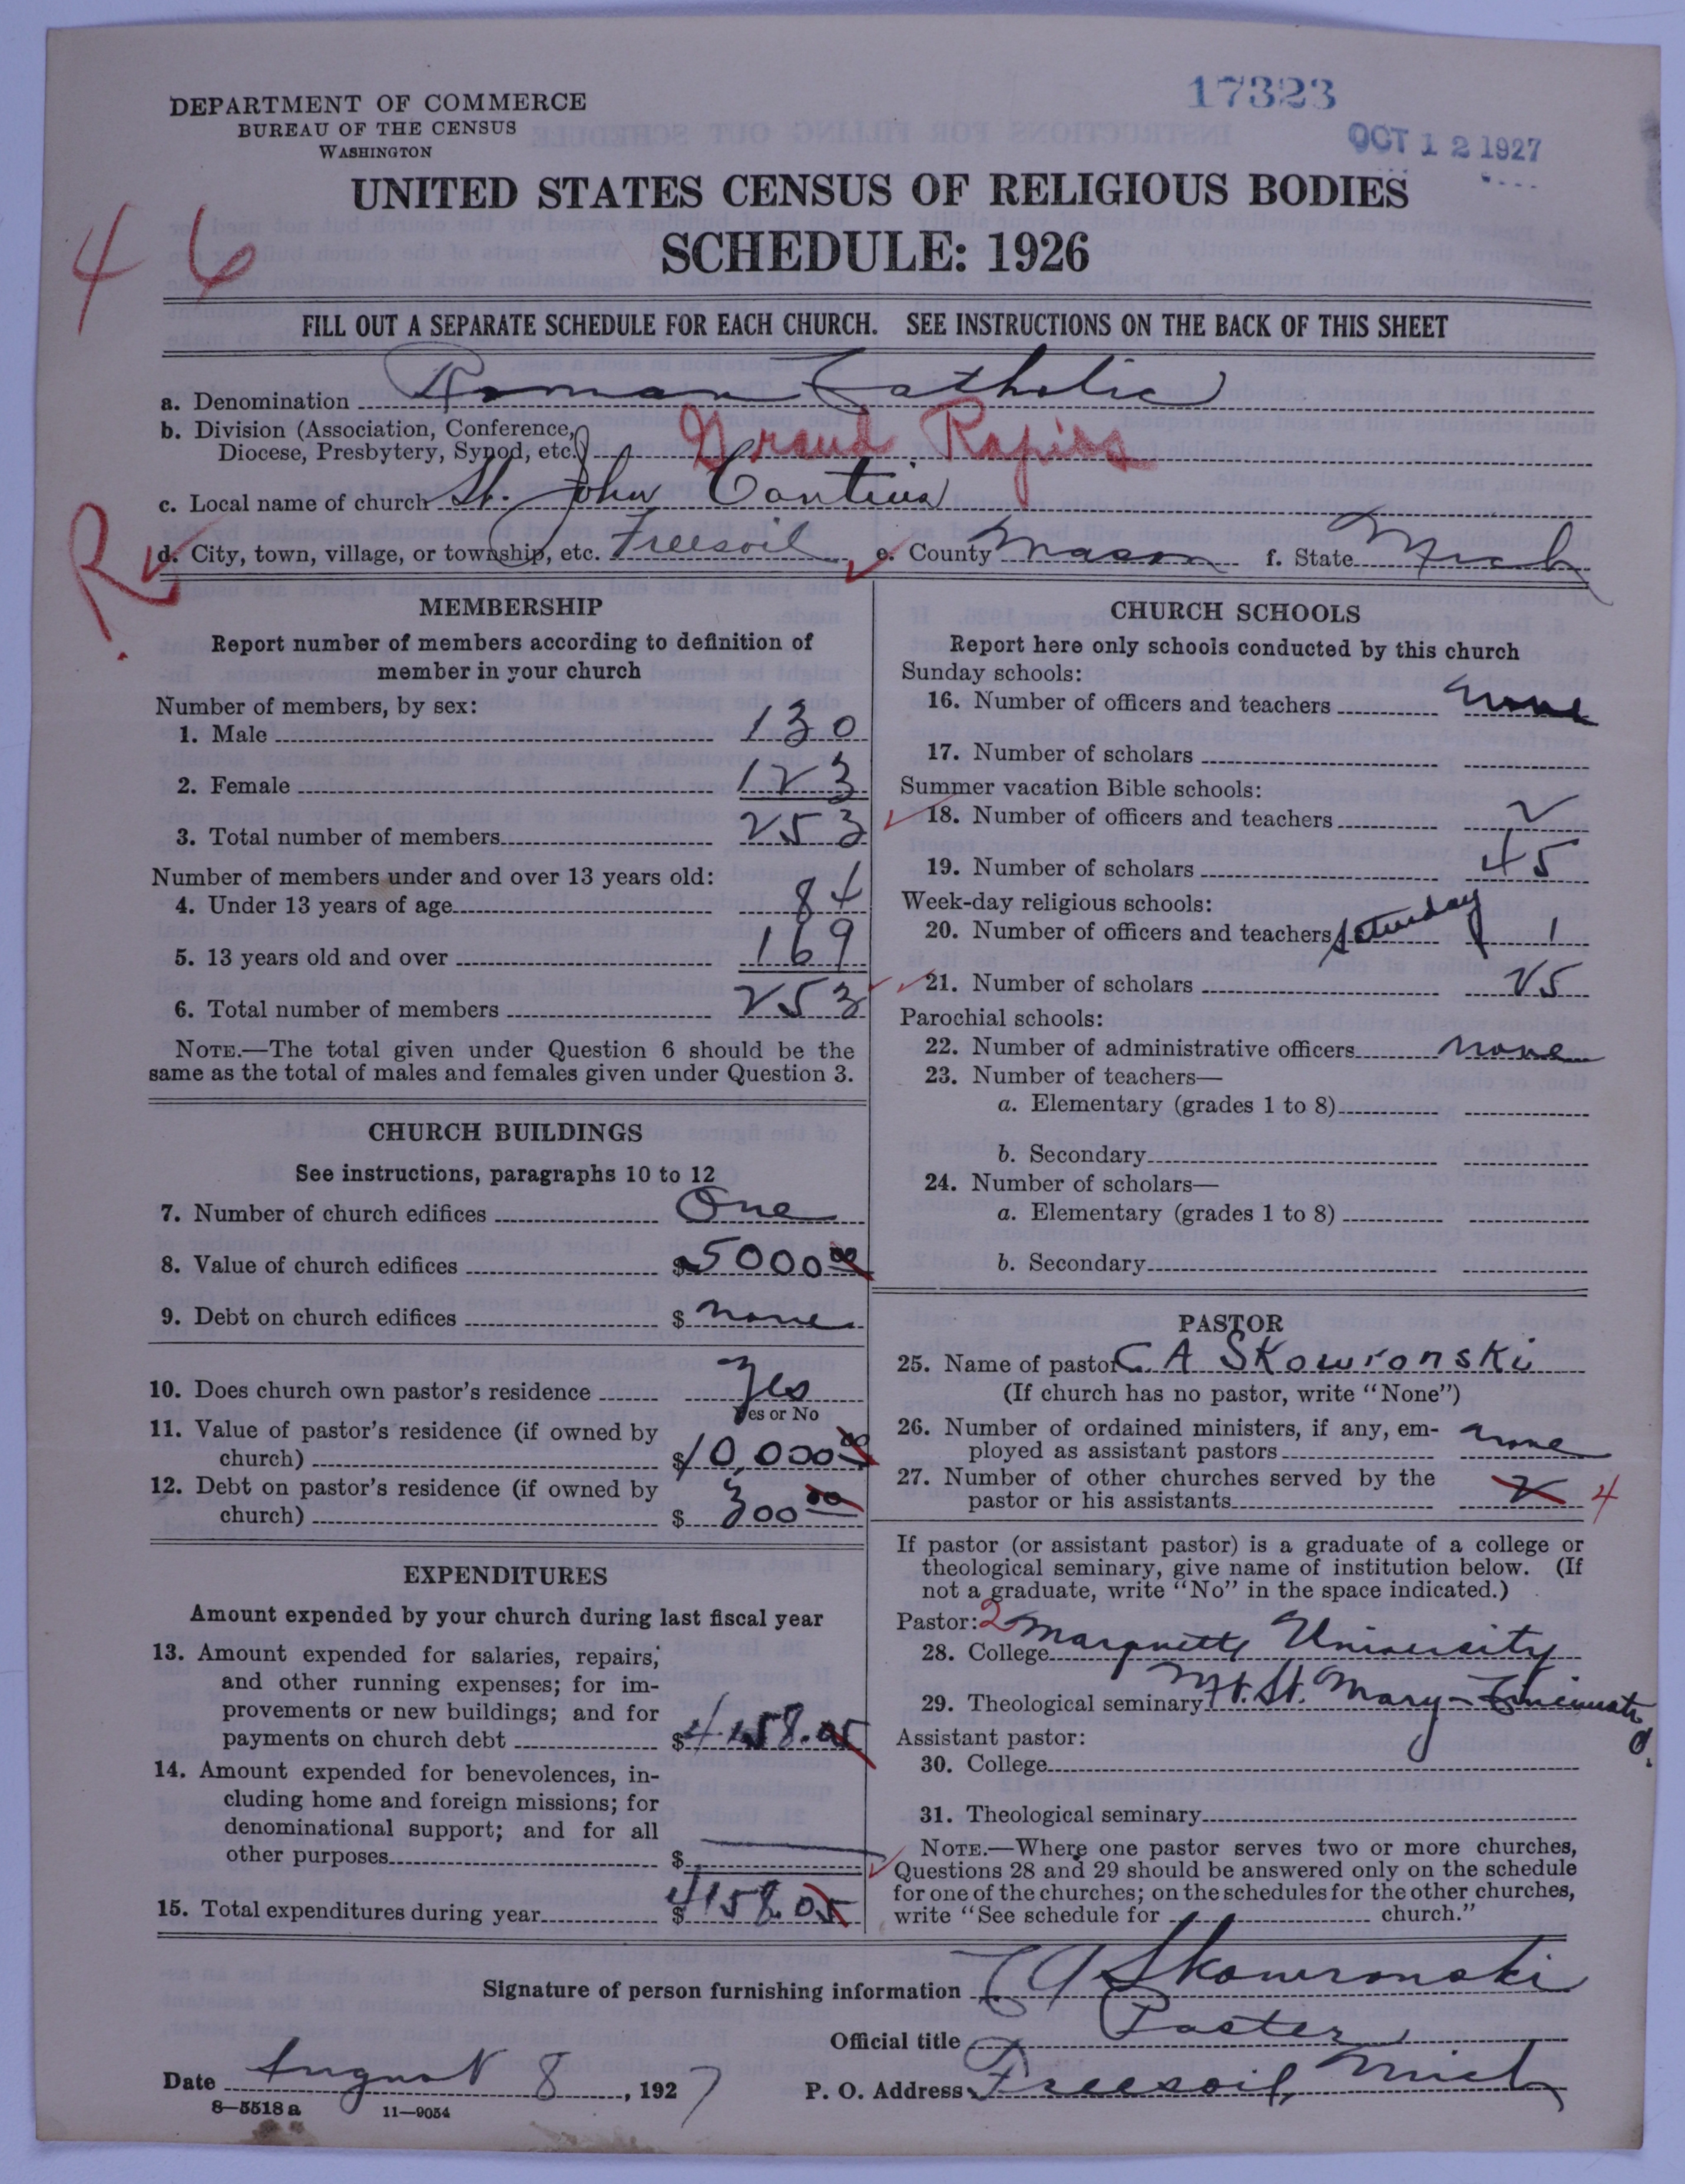 17323
OCT 12 1927
DEPARTMENT OF COMMERCE
BUREAU OF THE CENSUS
WASHINGTON
UNITED STATES CENSUS OF RELIGIOUS BODIES
SCHEDULE: 1926
46
FILL OUT A SEPARATE SCHEDULE FOR EACH CHURCH. SEE INSTRUCTIONS ON THE BACK OF THIS SHEET
a. Denomination Roman Catholic
b. Division (Association, Conference,
Diocese, Presbytery, Synod, etc.) Grand Rapids
c. Local name of church St. John Cantius
R
d. City, town, village, or township, etc. Freesoil e. County Mason f. State Mich
MEMBERSHIP
Report number of members according to definition of
member in your church
Number of members, by sex:
1. Male 130
2. Female 123
3. Total number of members 253
Number of members under and over 13 years old:
4. Under 13 years of age 84
5. 13 years old and over 169
6. Total number of members 253
NOTE.—The total given under Question 6 should be the
same as the total of males and females given under Question 3.
CHURCH BUILDINGS
See instructions, paragraphs 10 to 12
7. Number of church edifices One
8. Value of church edifices $5000 00
9. Debt on church edifices $ none
10. Does church own pastor's residence Yes
Yes or No
11. Value of pastor's residence (if owned by
church) $10,000 00
12. Debt on pastor's residence (if owned by
church) $ 300 00
EXPENDITURES
Amount expended by your church during last fiscal year
13. Amount expended for salaries, repairs,
and other running expenses; for im-
provements or new buildings; and for
payments on church debt $4158.05
14. Amount expended for benevolences, in-
cluding home and foreign missions; for
denominational support; and for all
other purposes $
15. Total expenditures during year $4158.05
CHURCH SCHOOLS
Report here only schools conducted by this church
Sunday schools:
16. Number of officers and teachers none
17. Number of scholars
Summer vacation Bible schools:
18. Number of officers and teachers 2
19. Number of scholars 45
Week-day religious schools:
20. Number of officers and teachers Saturday 1
21. Number of scholars 25
Parochial schools:
22. Number of administrative officers none
23. Number of teachers—
a. Elementary (grades 1 to 8)
b. Secondary
24. Number of scholars—
a. Elementary (grades 1 to 8)
b. Secondary
PASTOR
25. Name of pastor C. A Skowronski
(If church has no pastor, write "None")
26. Number of ordained ministers, if any, em-
ployed as assistant pastors none
27. Number of other churches served by the
pastor or his assistants 2 4
If pastor (or assistant pastor) is a graduate of a college or
theological seminary, give name of institution below. (If
not a graduate, write "No" in the space indicated.)
Pastor: 2
28. College Marquette University
29. Theological seminary Mt. St. Mary - Cincinnati O.
Assistant pastor:
30. College
31. Theological seminary
NOTE.—Where one pastor serves two or more churches,
Questions 28 and 29 should be answered only on the schedule
for one of the churches; on the schedules for the other churches,
write "See schedule for church."
Signature of person furnishing information C A Skowronski
Official title Paster
Date August 8, 1927 P. O. Address Freesoil, Mich
8—5518 a 11—9054